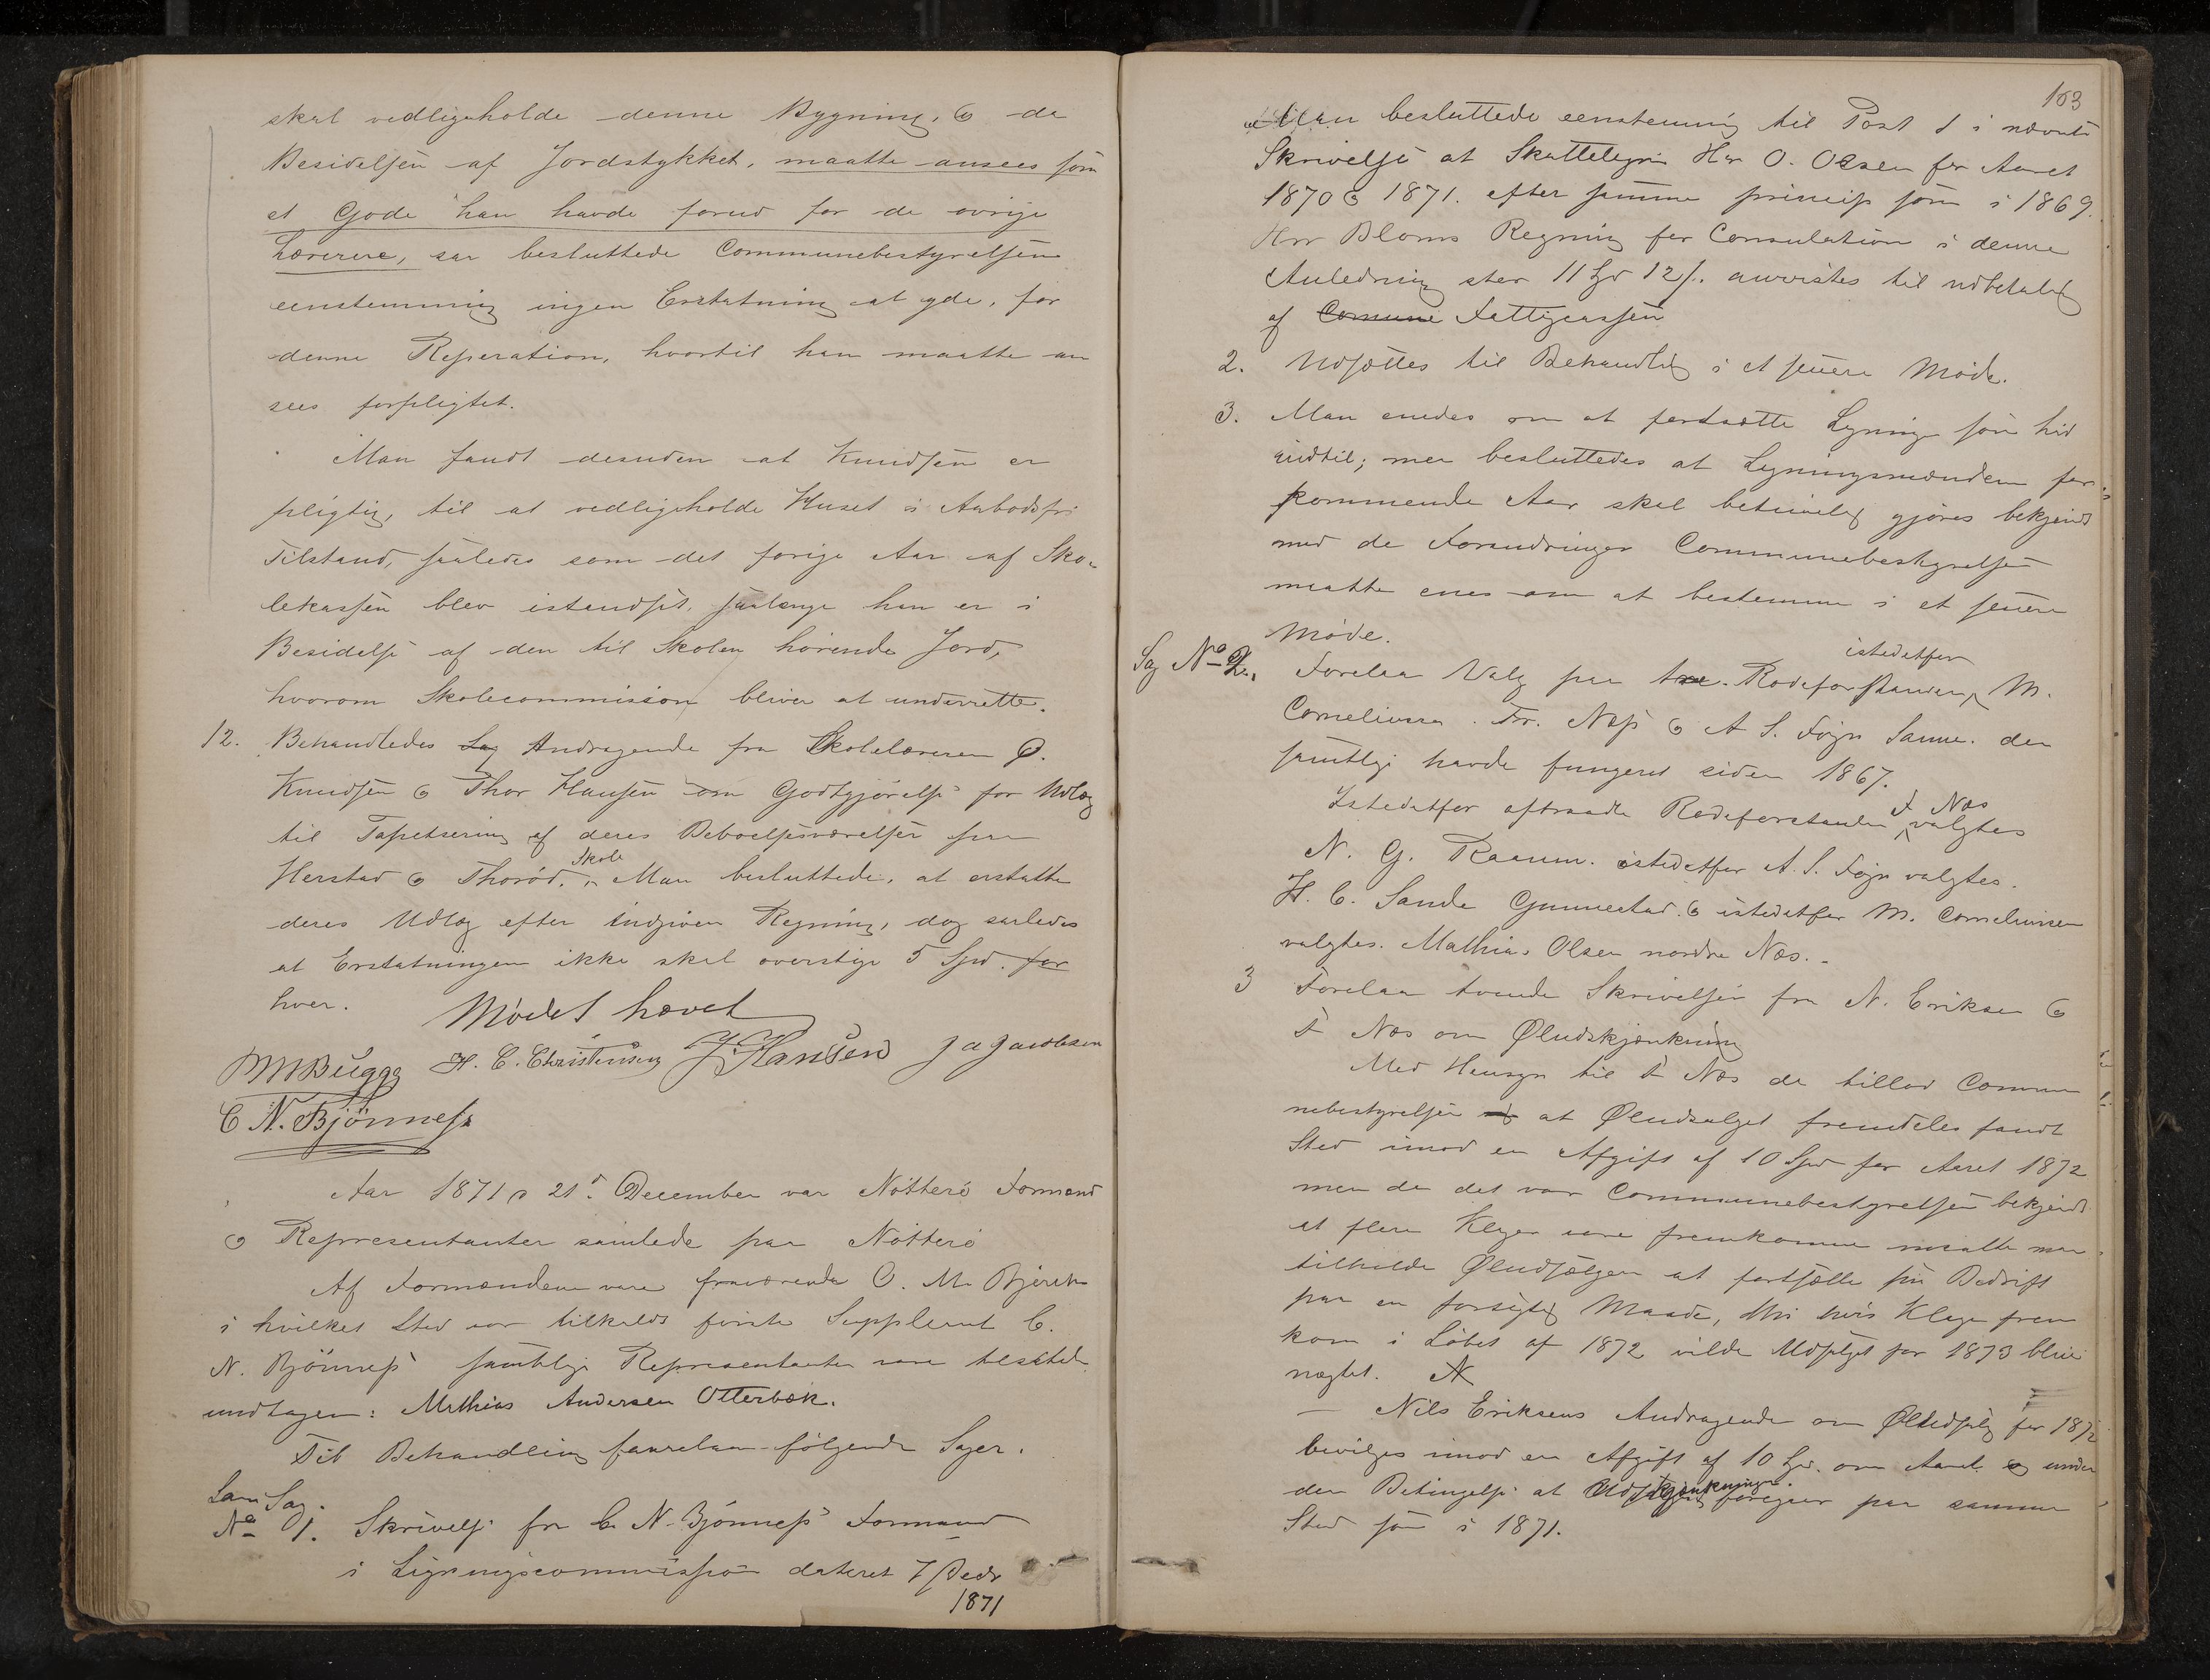 skal vedligeholde denne Bygning, & da
Besidelsen af Jordstykket, maatte ansees som
et Gode han havde forud for de øvrige
Lærerere, saa besluttede Communebestyrelsen
eenstemmig ingen Erstatning at yde, for
denne Reperation, hvortil han maatte an
sees forpligtet.
Man fandt desuden at Knudsen er
pligtig, til at vedligeholde Huset i Aabodsfri
Tilstand, saaledes som det forige Aar af Sko-
lekassen blev istandsat, saalænge han er i
Besidelse af den til Skolen hørende Jord,
hvorom Skolecommission bliver at underrette.
12. Behandledes Sag Andragende fra Skolelæreren O.
Knudsen & Thor Hansen om Godtgjørelse for Udlæg
til Tapetsering af deres Beboelsesværelser paa
Herstad & Thorød Skole. Man besluttede, at erstatte
deres Udlæg efter indgiven Regning, dog saaledes
at Erstatningen ikke skal overstige 5 Spd. for
hver.
Mødet hævet
MBugge H. C. Christensen J. Hansen J A Jacobsen
C N. Bjönness
Aar 1871 d 21de December var Nøtterø Formænd
& Representanter samlede paa Nøtterø
Af Formændene vare fraværende C. M. Bjerck
i hvilket Sted var tilkaldt første Suppleant C.
N. Bjönness samtlige Representanter vare tilstede
undtagen: Mathias Andersen Otterbæk.
Til Behandling faarelaa følgende Sager.
Sag
No 1. Skrivelse fra C. N. Bjönness Formand
i Ligningscommission dateret 7 Decbr
1871
163
Man besluttede eenstemmig til Post 1 i nævnte
Skrivelse at Skattelegge Hr O. Olsen for Aaret
1870 & 1871. efter samme princip som i 1869.
Hrr Bloms Regning for Consulation i denne
Anledning stor 11 Spd 12 s. anvistes til udbetaling
af Comune Fattigcassen
2. Udsættes til Behandling i et senere Møde.
3. Man enedes om at fortsætte Lygninge som hid
indtil; men besluttedes at Lygningsmændene for
kommende Aar skal betimelig gjøres bekjendt
med de Forandringer Communebestyrelsen
maatte enes om at bestemme i et senere
Møde.
Sag No 2. Forelaa Valg paa tre Rodeforstandere istedetfor M.
Corneliussen. Fr. Næs & A S. Føyn Sanne. der
samtlige havde fungeret siden 1867.
Istedetfor aftraadte Rodeforstander F Næs valgtes
N. G. Raanm. istedetfor A. S. Føyn valgtes.
H. C. Sande Gunnestad. & istedetfor M. Corneliussen
valgtes. Mathias Olsen nordre Næs.
3 Forelaa tvende Skrivelser fra N. Eriksen &
F Næs om Øludskjænkning
Med Hensyn til F Næs da tillod Commu
nebestyrelsen at Øludsalget fremdeles fandt
Sted imod en Afgift af 10 Spd for Aaret 1872
men da det var Communebestyrelsen bekjendt
at flere Klager vare fremkomne maatte man
tilholde Øludsælgeren at fortsætte sin Bedrift
paa en forsigtig Maade, thi hvis Klage frem
kom i Løbet af 1872 vilde Udsalget for 1873 blive
nægtet. N
— Nils Eriksens Andragende om Øludsalg for 1872
bevilges imod en Afgift af 10 Spd. om Aaret og under
den Betingelse at Udskjænkningen foregaar paa samme
Sted som i 1871.